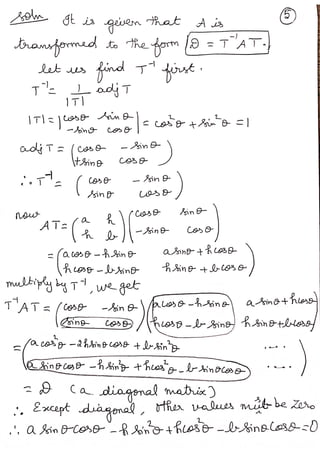 Soln It is given that A is ⑤
transformed to the form D = T⁻¹AT.
let us find T⁻¹ first.
T⁻¹ = 1/|T| adj T
|T| = |cosθ sinθ
-sinθ cosθ| = cos²θ + sin²θ = 1
adj T = (cosθ -sinθ
+sinθ cosθ)
∴ T⁻¹ = (cosθ -sinθ
sinθ cosθ)
now
AT = (a h
h b) (cosθ sinθ
-sinθ cosθ)
= (a cosθ - h sinθ a sinθ + h cosθ
h cosθ - b sinθ h sinθ + b cosθ)
multiply by T⁻¹, we get
T⁻¹AT = (cosθ -sinθ
sinθ cosθ) (a cosθ - h sinθ a sinθ + h cosθ
h cosθ - b sinθ h sinθ + b cosθ)
= (a cos²θ - 2h sinθ cosθ + b sin²θ ....
a sinθ cosθ - h sin²θ + h cos²θ - b sinθ cosθ ....)
= D (a diagonal matrix)
∴ Except diagonal, other values must be zero
∴ a sinθ cosθ - h sin²θ + h cos²θ - b sinθ cosθ = 0